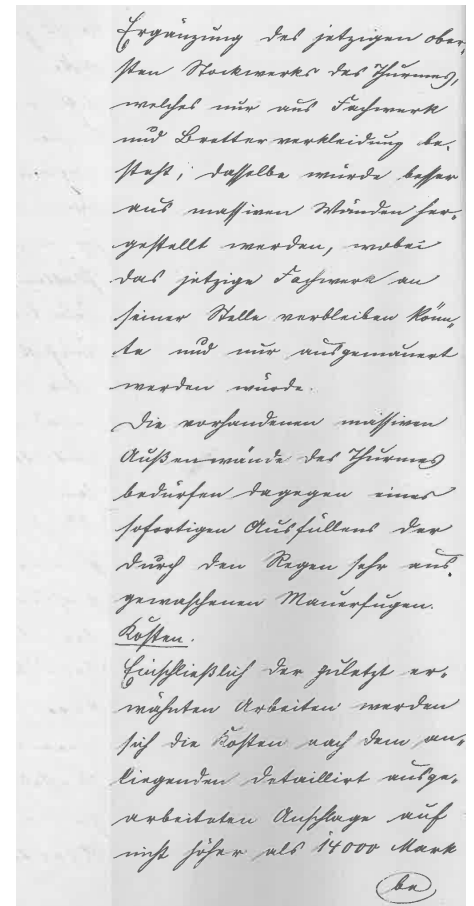 Ergänzung des jetzigen ober-
sten Stockwerks des Thurmes,
welches nur aus Fachwerk
und Bretterverkleidung be-
steht; dasselbe würde besser
aus massiven Wänden her-
gestellt werden, wobei
das jetzige Fachwerk an
seiner Stelle verbleiben könn-
te und nur ausgemauert
werden würde.
Die vorhandenen massiven
Außenwände des Thurmes
bedürfen dagegen eines
sofortigen Ausfüllens der
durch den Regen sehr aus-
gewaschenen Mauerfugen.
Kosten.
Einschließlich der zuletzt er-
wähnten Arbeiten werden
sich die Kosten nach dem an-
liegenden detaillirt ausge-
arbeiteten Anschlage auf
nicht höher als 14000 Mark
be